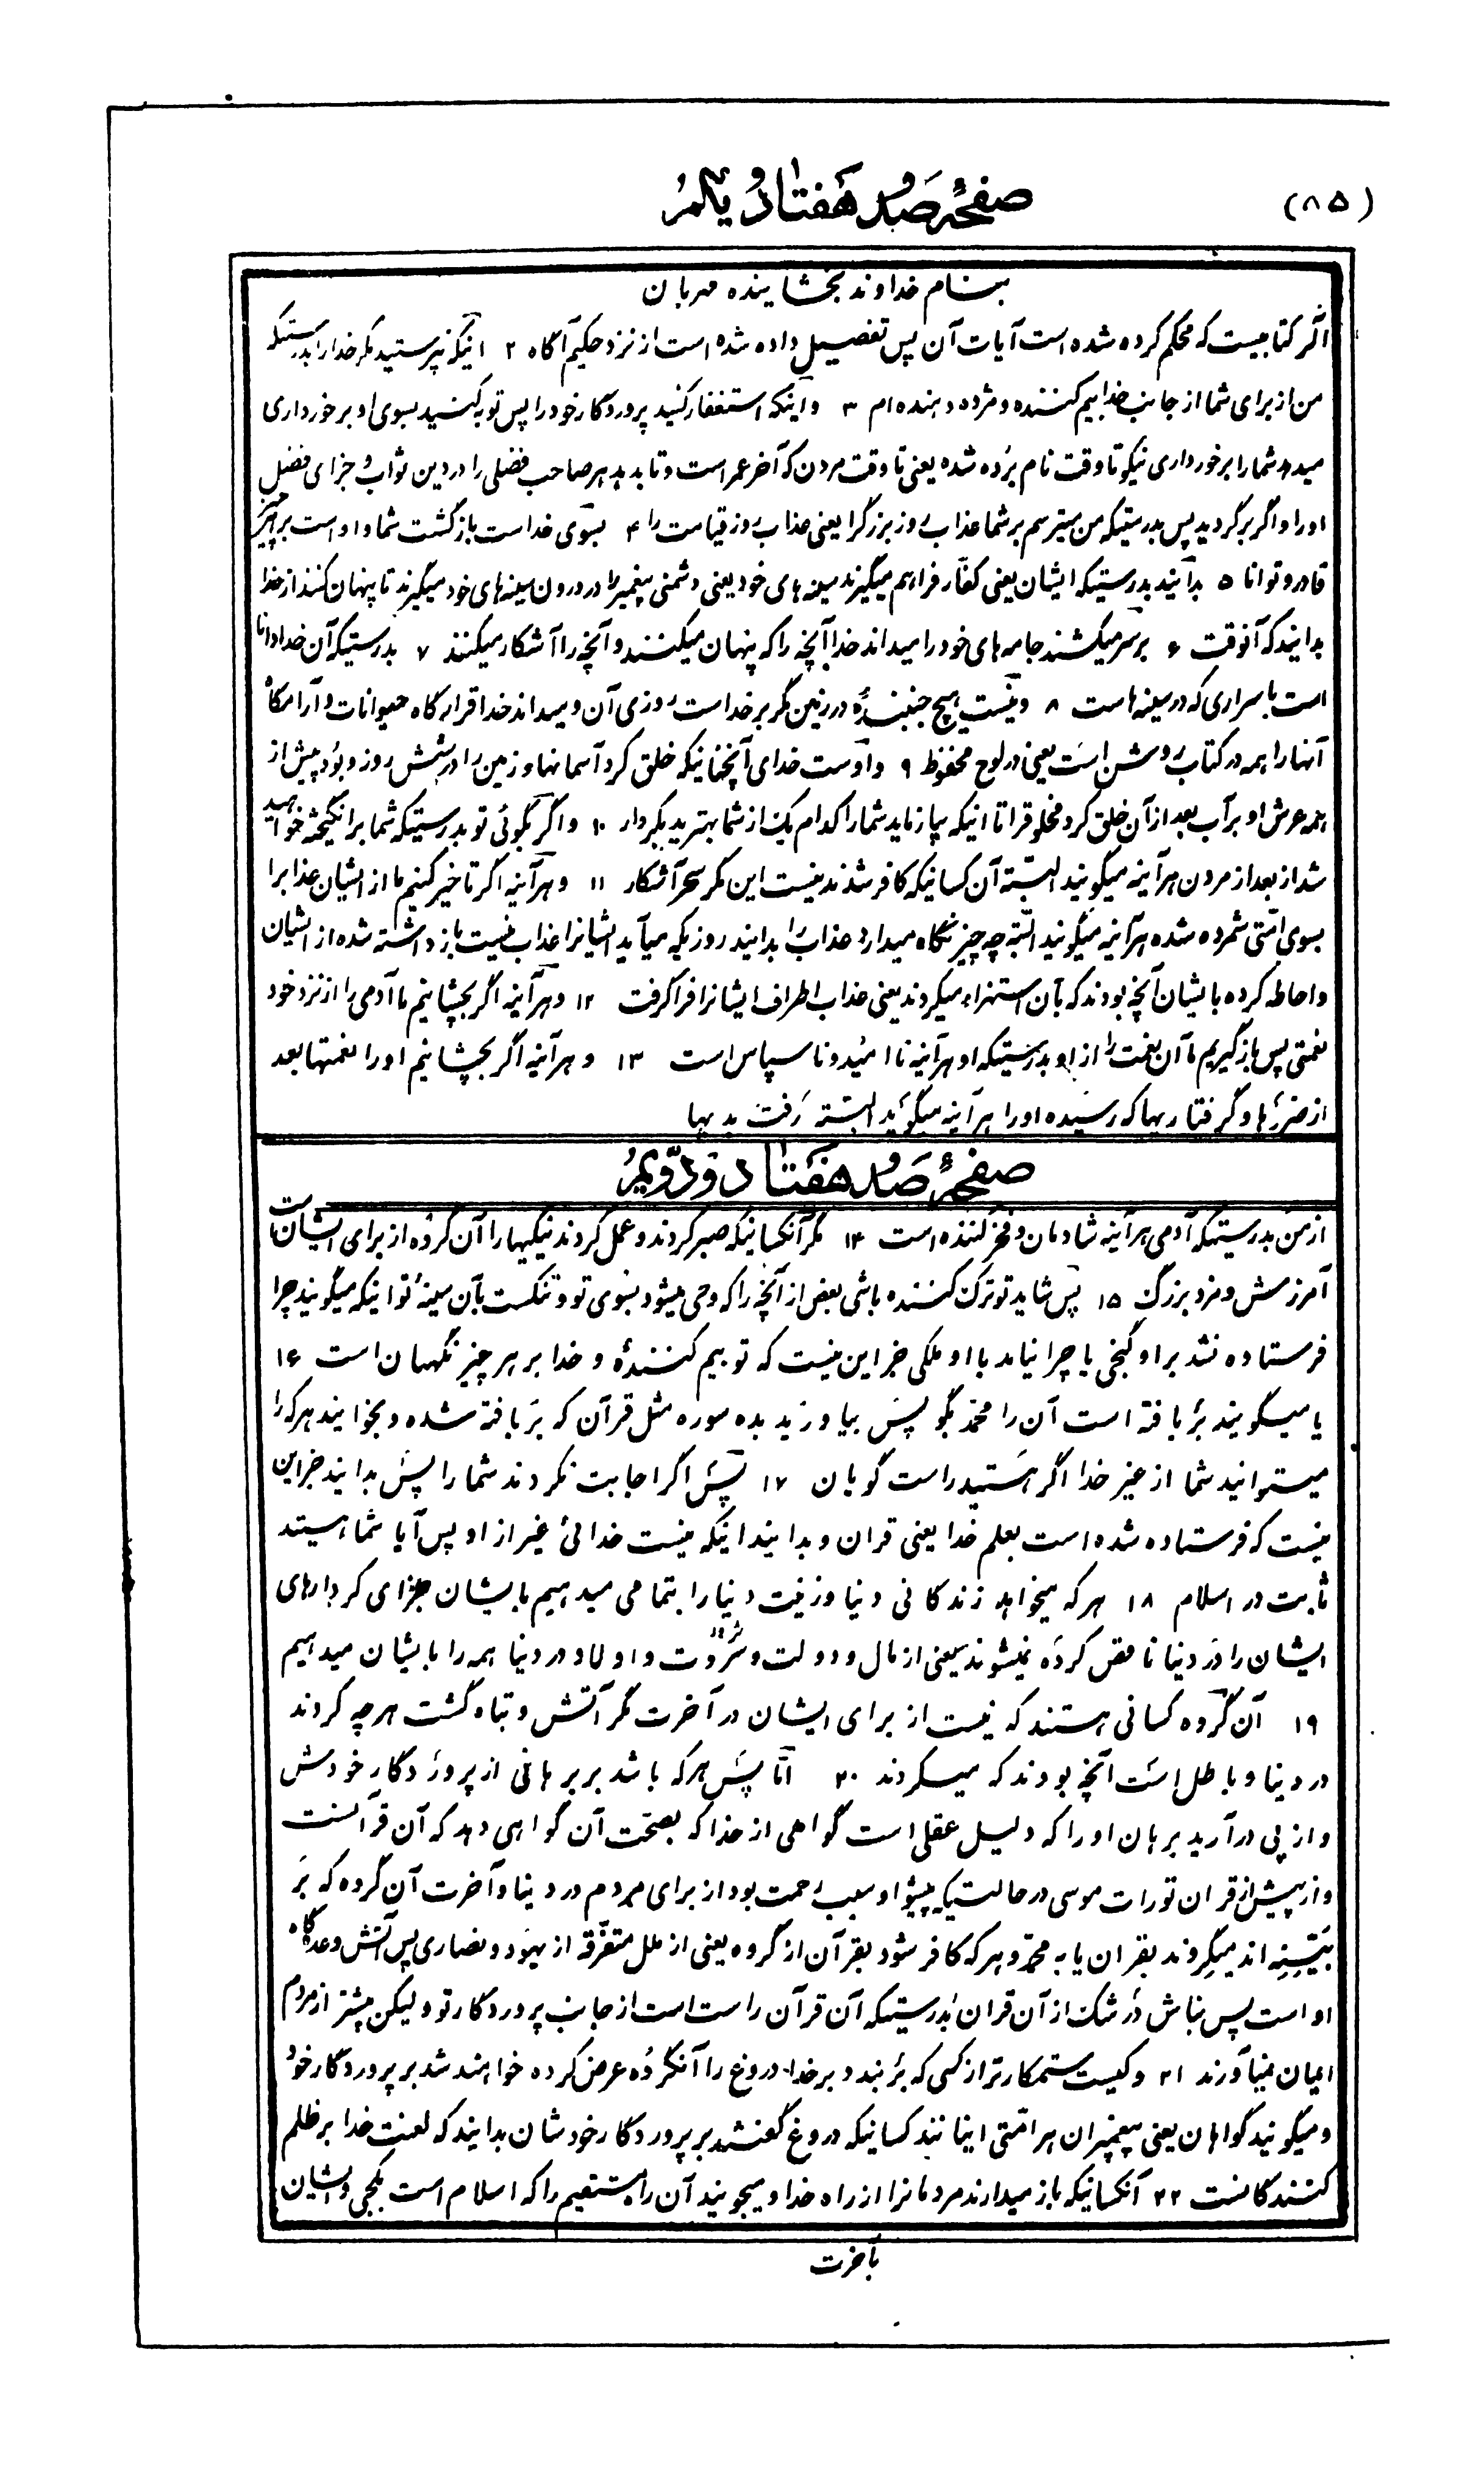 (۸۵)
صفحهٔ صد و هفتاد و یکم
بنام خداوند بخشاینده مهربان
الر کتابیست که محکم کرده شده است آیات آن پس تفصیل داده شده است از نزد حکیم آگاه ۲ اینکه نپرستید مگر خدا را بدرستیکه
من از برای شما از جانب خدا بیم کننده و مژده دهنده ام ۳ و اینکه استغفار کنید پروردگار خود را پس توبه کنید بسوی او برخورداری
میدهد شما را برخورداری نیکو تا وقت نام برده شده یعنی تا وقت مردن که آخر عمر است و تا بدهد هر صاحب فضلی را در دین ثواب و جزای فضل
او را و اگر برگردید پس بدرستیکه من میترسم بر شما عذاب روز بزرگرا یعنی عذاب روز قیامت را ۴ بسوی خداست بازگشت شما و او است بر همه چیز
قادر و توانا ۵ بدانید بدرستیکه ایشان یعنی کفار فراهم میگیرند سینه های خود یعنی دشمنی پیغمبر را در درون سینه های خود میگیرند تا پنهان کنند از خدا
بدانید که آنوقت ۶ بر سر میکشند جامه های خود را میداند خدا آنچه را که پنهان میکنند و آنچه را آشکار میکنند ۷ بدرستیکه آن خدا دانا
است باسراری که در سینه هاست ۸ و نیست هیچ جنبندهٔ در زمین مگر بر خداست روزی آن و میداند خدا قرارگاه حیوانات و آرامگاه
آنها را همه در کتاب روشن است یعنی در لوح محفوظ ۹ و اوست خدای آنچنانیکه خلق کرد آسمانها و زمین را در شش روز و بود پیش از
همه عرش او بر آب بعد از آن خلق کرد مخلوقرا تا اینکه بیازماید شما را کدام یک از شما بهترید بکردار ۱۰ و اگر بگوئی تو بدرستیکه شما برانگیخته خواهید
شد از بعد از مردن هرآینه میگویند البته آن کسانیکه کافر شدند نیست این مگر سحر آشکار ۱۱ و هرآینه اگر تاخیر کنیم ما از ایشان عذابرا
بسوی امتی شمرده شده هرآینه میگویند البته چه چیز نگاه میدارد عذاب را بدانید روزیکه میآید ایشانرا عذاب نیست بازداشته شده از ایشان
و احاطه کرده بایشان آنچه بودند که بآن استهزاء میکردند یعنی عذاب اطراف ایشانرا فرا گرفت ۱۲ و هرآینه اگر بچشانیم ما آدمی را از نزد خود
نعمتی پس بازگیریم ما آن نعمت را از او بدرستیکه او هرآینه نا امید و ناسپاس است ۱۳ و هرآینه اگر بچشانیم او را نعمتها بعد
از ضررها و گرفتاریها که رسیده او را هرآینه میگوید البته رفت بدیها
صفحهٔ صد و هفتاد و دویم
از من بدرستیکه آدمی هرآینه شادمان و فخر کننده است ۱۴ مگر آنکسانیکه صبر کردند و عمل کردند نیکیها را آن گروه از برای ایشان است
آمرزش و مزد بزرگ ۱۵ پس شاید تو ترک کننده باشی بعض از آنچه را که وحی میشود بسوی تو و تنگست بآن سینهٔ تو اینکه میگویند چرا
فرستاده نشد بر او گنجی یا چرا نیامد با او ملکی جز این نیست که تو بیم کنندهٔ و خدا بر هر چیز نگهبان است ۱۶
یا میگویند بر بافته است آن را محمد بگو پس بیاورید بده سوره مثل قرآن که بر بافته شده و بخوانید هر که را
میتوانید شما از غیر خدا اگر هستید راست گویان ۱۷ پس اگر اجابت نکردند شما را پس بدانید جز این
نیست که فرستاده شده است بعلم خدا یعنی قران و بدانید اینکه نیست خدائی غیر از او پس آیا شما هستید
ثابت در اسلام ۱۸ هر که میخواهد زندگانی دنیا و زینت دنیا را بتمامی میدهیم بایشان جزای کردارهای
ایشان را در دنیا ناقص کرده نمیشوند یعنی از مال و دولت و ثروت و اولاد در دنیا همه را بایشان میدهیم
۱۹ آن گروه کسانی هستند که نیست از برای ایشان در آخرت مگر آتش و تباه گشت هرچه کردند
در دنیا و باطل است آنچه بودند که میکردند ۲۰ امّا پس هر که باشد بر برهانی از پروردگار خودش
و از پی درآرید برهان او را که دلیل عقلی است گواهی از خدا که بصحّت آن گواهی دهد که آن قرآنست
و از پیش از قران تورات موسی در حالتیکه پیشوا و سبب رحمت بود از برای مردم در دنیا و آخرت آن گروه که بر
بیّنه اند میگروند بقران یا به محمّد و هر که کافر شود بقرآن از گروه یعنی از ملل متفرّقه از یهود و نصاری پس آتش وعدگاه
او است پس نباش در شک از آن قران بدرستیکه آن قرآن راست است از جانب پروردگار تو ولیکن بیشتر از مردم
ایمان نمیآورند ۲۱ و کیست ستمکارتر از کسی که بر بندد بر خدا دروغ را آنگروه عرض کرده خواهند شد بر پروردگار خود
و میگویند گواهان یعنی پیغمبران هر امّتی اینانند کسانیکه دروغ گفتند بر پروردگار خودشان بدانید که لعنت خدا بر ظلم
کنندگانست ۲۲ آنکسانیکه باز میدارند مردمانرا از راه خدا و میجویند آن راه مستقیم را که اسلام است بکجی و ایشان
بآخرت